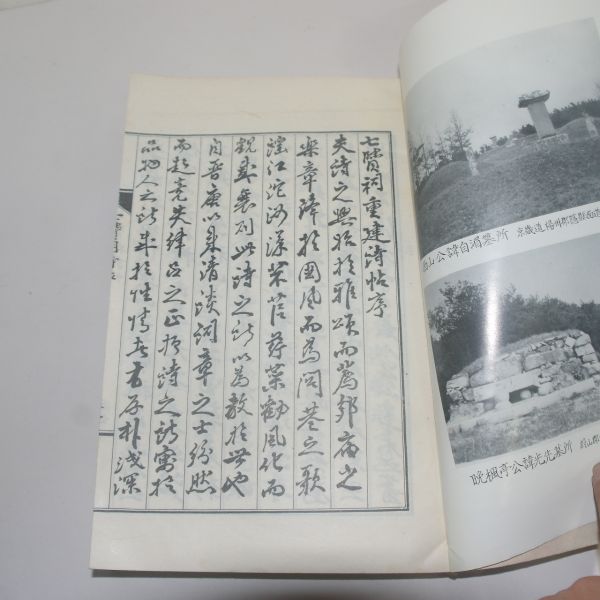 七賢祠重建詩帖序
夫詩之興始於雅頌而薦郊廟之
樂章降於國風而為閭巷之歌
謠江沱汝漢采苢荇菜勸風化而
觀盛衰則此詩之所以為教於世也
自晋唐以来清談詞章之士紛然
而起竟失律呂之正於詩之所寓於
品物人之所感於性情者有存朴或深
山公諱自渭墓所 京畿道 楊州郡隱縣面道
晩楓亭公諱光先墓所